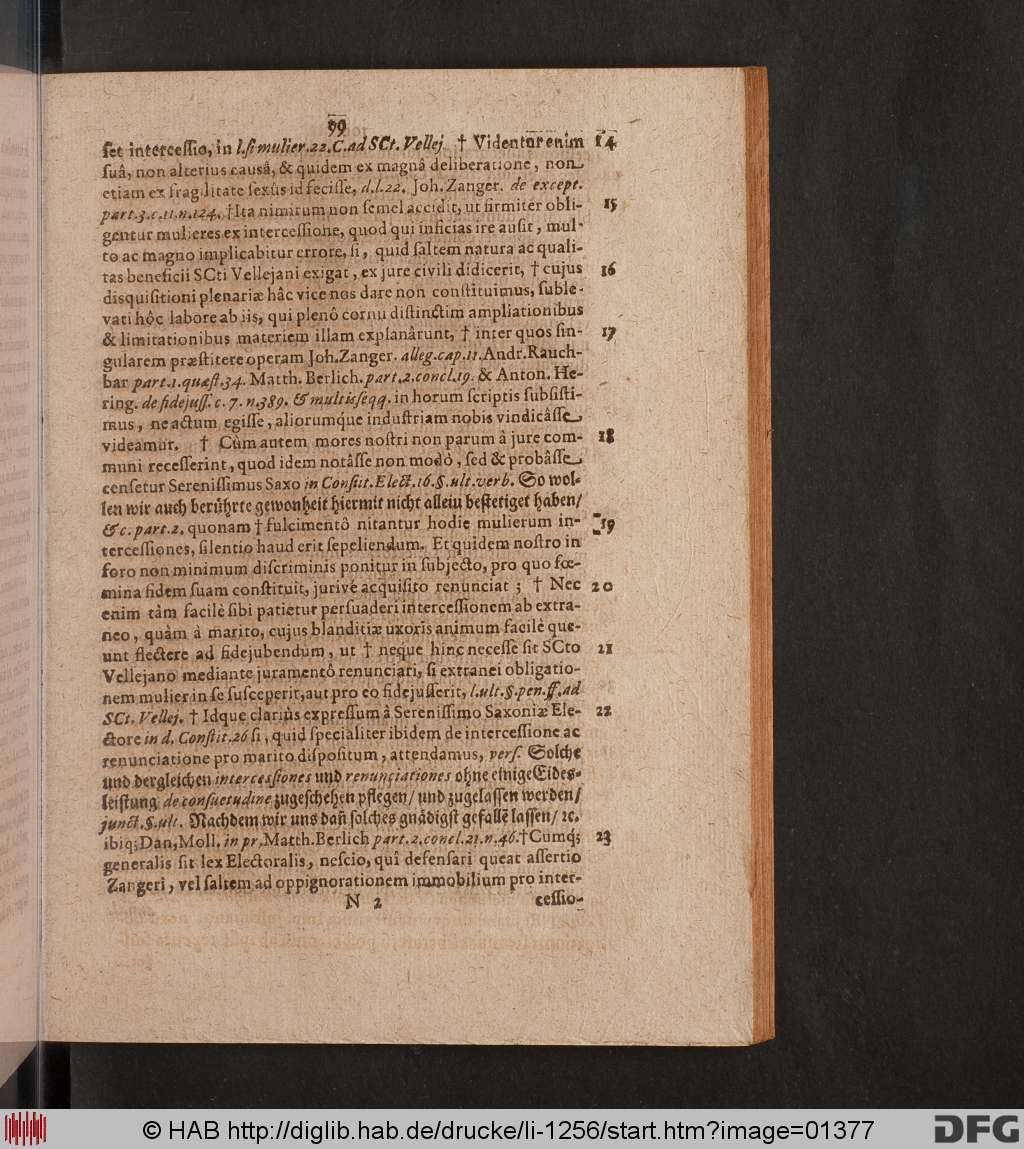 99
ſet interceſſio, in l. ſi mulier. 22. C. ad SCt. Vellej. † Videntur enim 14
ſuâ, non alterius causâ, & quidem ex magnâ deliberatione, non
etiam ex fragilitate ſexûs id feciſſe, d. l. 22. Joh. Zanger. de except.
part. 3. c. 11. n. 124. † Ita nimirum non ſemel accidit, ut firmiter obli- 15
gentur mulieres ex interceſſione, quod qui inficias ire auſit, mul-
to ac magno implicabitur errore, ſi, quid ſaltem natura ac quali-
tas beneficii SCti Vellejani exigat, ex jure civili didicerit, † cujus 16
disquiſitioni plenariæ hâc vice nos dare non conſtituimus, ſuble-
vati hôc labore ab iis, qui plenô cornu diſtinctim ampliationibus
& limitationibus materiem illam explanârunt, † inter quos ſin- 17
gularem præſtitere operam Joh. Zanger. alleg. cap. 11. Andr. Rauch-
bar part. 1. quæſt. 34. Matth. Berlich. part. 2. concl. 19. & Anton. He-
ring. de fidejuſſ. c. 7. n. 389. & multis ſeqq. in horum ſcriptis ſubſiſti-
mus, ne actum egiſſe, aliorumque induſtriam nobis vindicâſſe
videamur. † Cùm autem mores noſtri non parum â jure com- 18
muni receſſerint, quod idem notâſſe non modò, ſed & probâſſe
cenſetur Sereniſſimus Saxo in Conſtit. Elect. 16. §. ult. verb. So wol-
len wir auch berührte gewonheit hiermit nicht allein beſtetiget haben/
&c. part. 2. quonam † fulcimentô nitantur hodie mulierum in- 19
terceſſiones, ſilentio haud erit ſepeliendum. Et quidem noſtro in
foro non minimum diſcriminis ponitur in ſubjecto, pro quo fœ-
mina fidem ſuam conſtituit, jurivè acquiſito renunciat; † Nec 20
enim tàm facilè ſibi patietur perſuaderi interceſſionem ab extra-
neo, quàm à marito, cujus blanditiæ uxoris animum facilè que-
unt flectere ad fidejubendum, ut † neque hinc neceſſe ſit SCto 21
Vellejano mediante juramentô renunciati, ſi extranei obligatio-
nem mulier in ſe ſuſceperit, aut pro eo fidejuſſerit, l. ult. §. pen. ff. ad
SCt. Vellej. † Idque clariùs expreſſum â Sereniſſimo Saxoniæ Ele- 22
ctore in d. Conſtit. 26 ſi, quid ſpecialiter ibidem de interceſſione ac
renunciatione pro marito diſpoſitum, attendamus, verſ. Solche
und dergleichen interceſſiones und renunciationes ohne einige Eides-
leiſtung de conſuetudine zugeſchehen pflegen/ und zugelaſſen werden/
junct. §. ult. Nachdem wir uns dañ ſolches gnädigſt gefallẽ laſſen/ ꝛc.
ibiq; Dan. Moll. in pr. Matth. Berlich part. 2. concl. 21. n. 46. † Cùmq; 23
generalis ſit lex Electoralis, neſcio, quî defenſari queat aſſertio
Zangeri, vel ſaltem ad oppignorationem immobilium pro inter-
N 2 ceſſio-
© HAB http://diglib.hab.de/drucke/li-1256/start.htm?image=01377
DFG